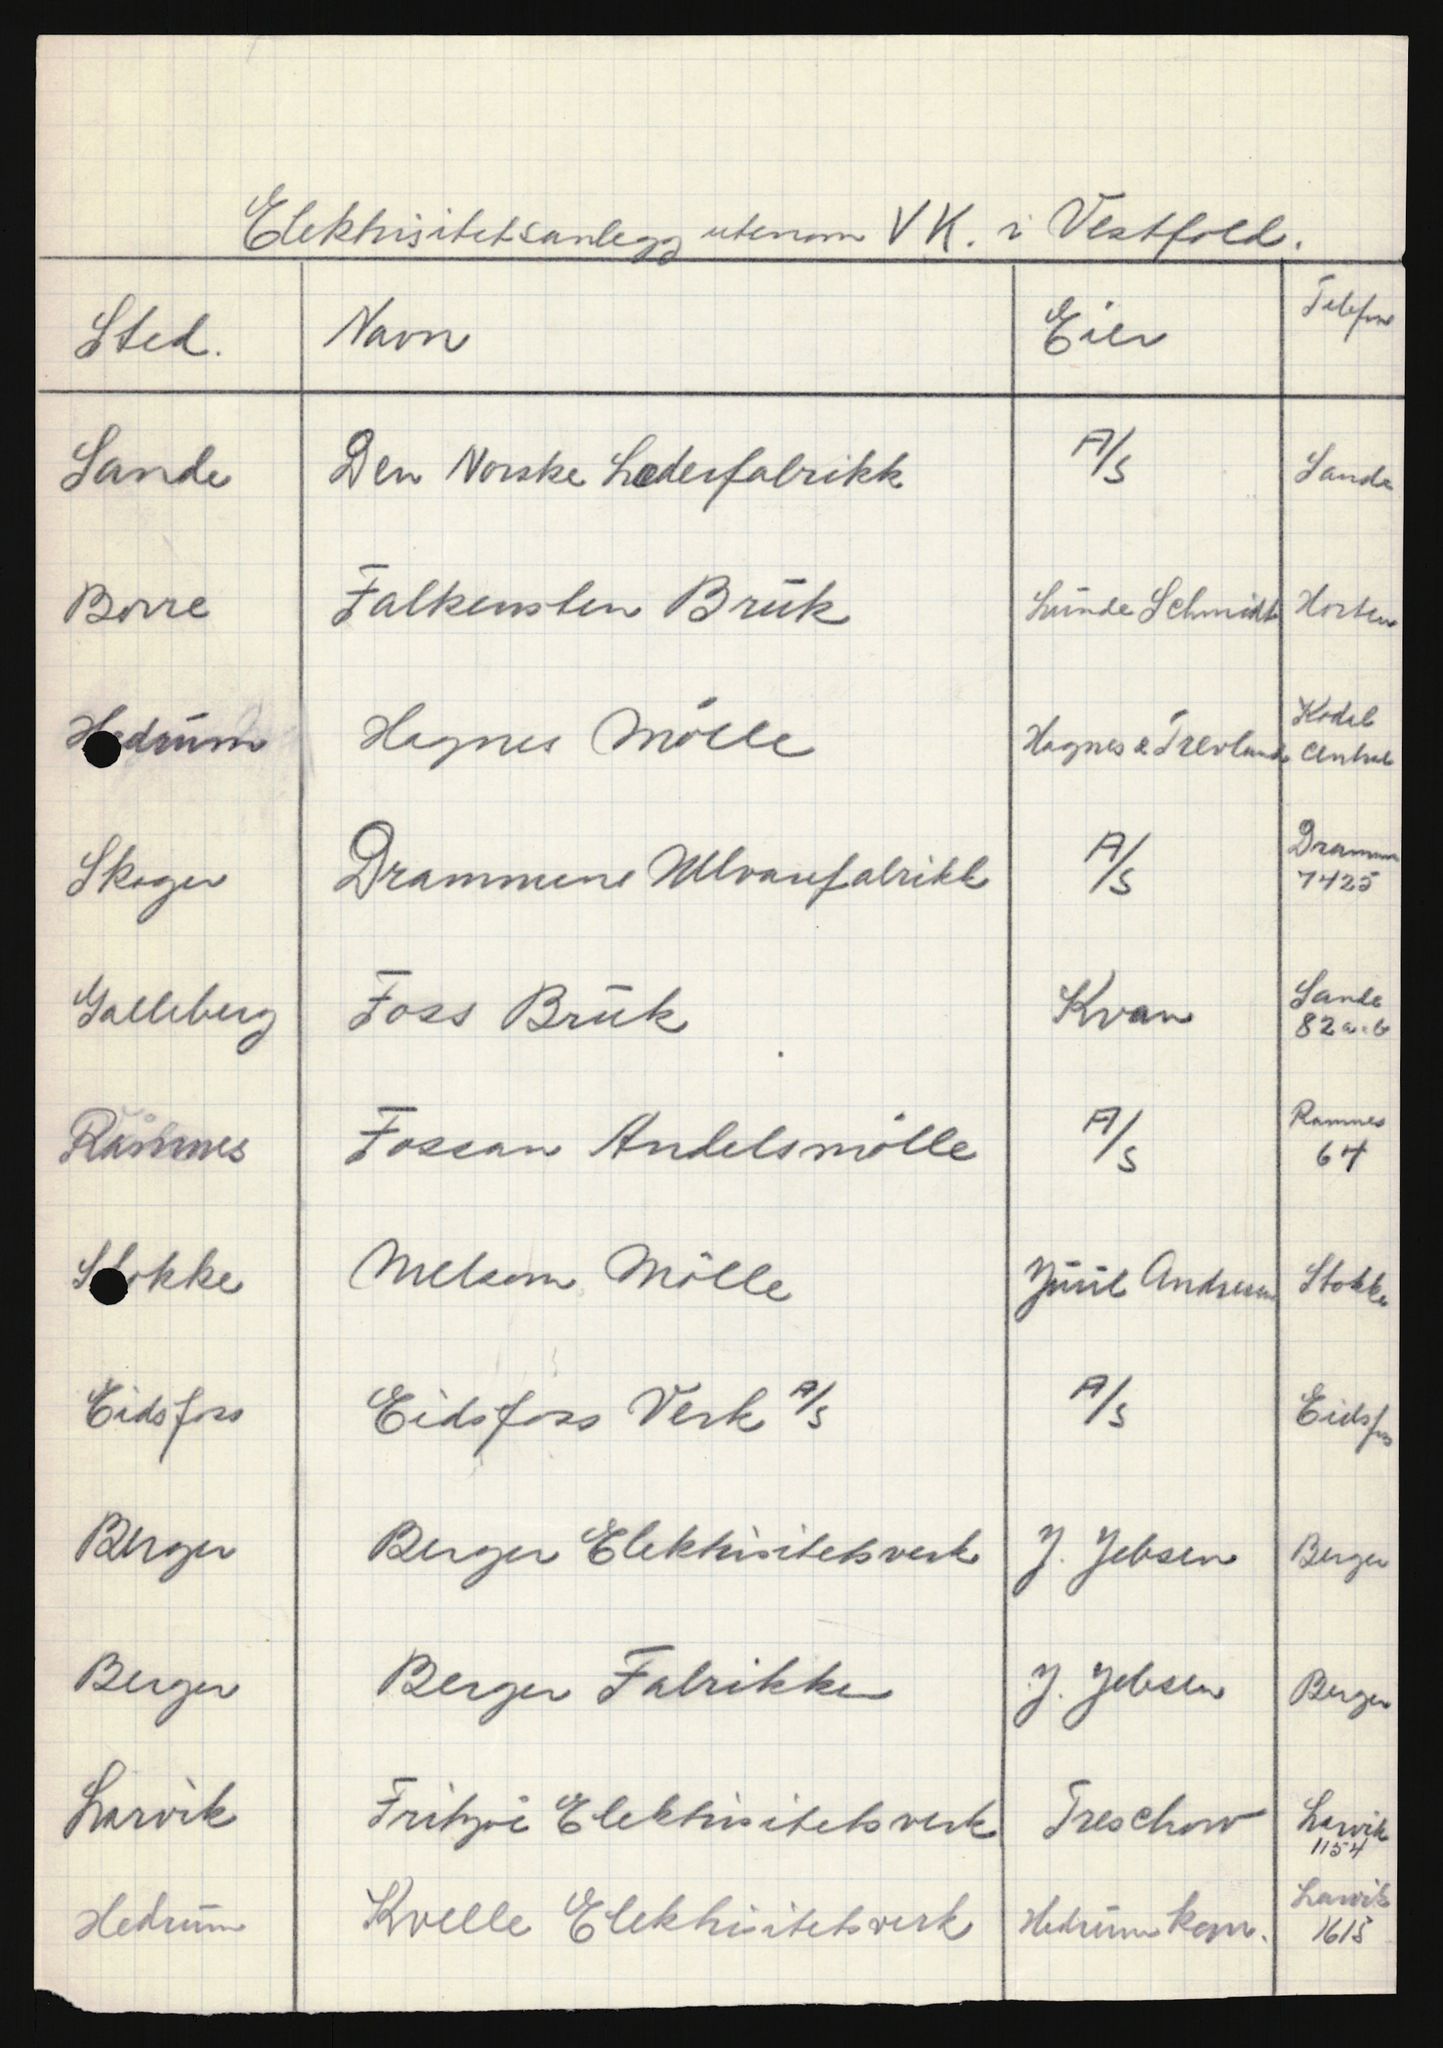 Elektrisitetsanlegg utenom VK. i Vestfold.
Sted. Navn Eier Telefon
Sande Den Norske Læderfabrikk A/S Sande
Borre Falkensten Bruk Lunde Schmidt Horten
Hedrum Hagnes Mölle Hagnes & Trevland Kodal Central
Skoger Drammens Ulvarefabrikk A/S Drammen 7425
Galleberg Foss Bruk Kvan Sande 82 a-b
Ramnes Fossan Andelsmölle A/S Ramnes 64
Stokke Melsom Mölle Juul Andresen Stokke
Eidsfoss Eidsfoss Verk A/S A/S Eidsfos
Berger Berger Elektrisitetsverk J. Jebsen Berger
Berger Berger Fabrikker J. Jebsen Berger
Larvik Fritzöe Elektrisitetsverk Treschow Larvik 1154
Hedrum Kvelle Elektrisitetsverk Hedrum kom. Larvik 1615